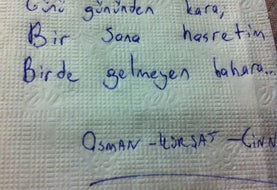 Günü gününden kara,
Bir Sana hasretim
Birde gelmeyen bahara...
OSMAN - KÜRŞAT - CİNN